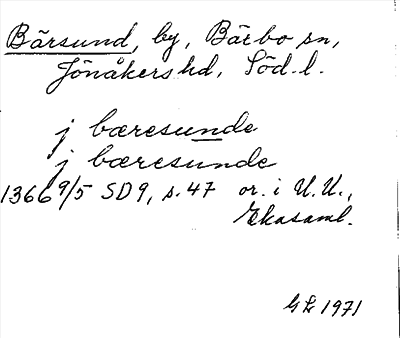 Bärsund, by, Bärbo sn,
Jönåkers hd, Söd. l.
j bæresunde
j bæresunde
1366 9/5 SD 9, s. 47 or. i U.U.,
Ekasaml.
GL 1971